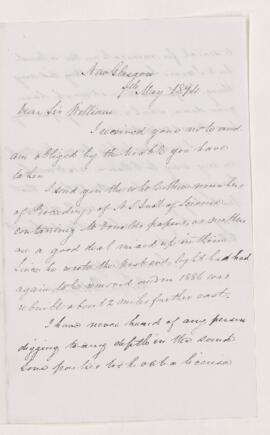 New Glasgow
7th May 1894
Dear Sir William
I received your note and
am obliged by the trouble you have
taken
I send you the other numbers
of Proceedings of N.S. Inst. of Science
containing papers, as matters
are a good deal mixed up in them
Since he wrote the east end light had had
again to be removed and in 1886 was
rebuilt about 2 miles further east.
I have never heard of any person
digging to any depth in the sand
Some parties took out a license